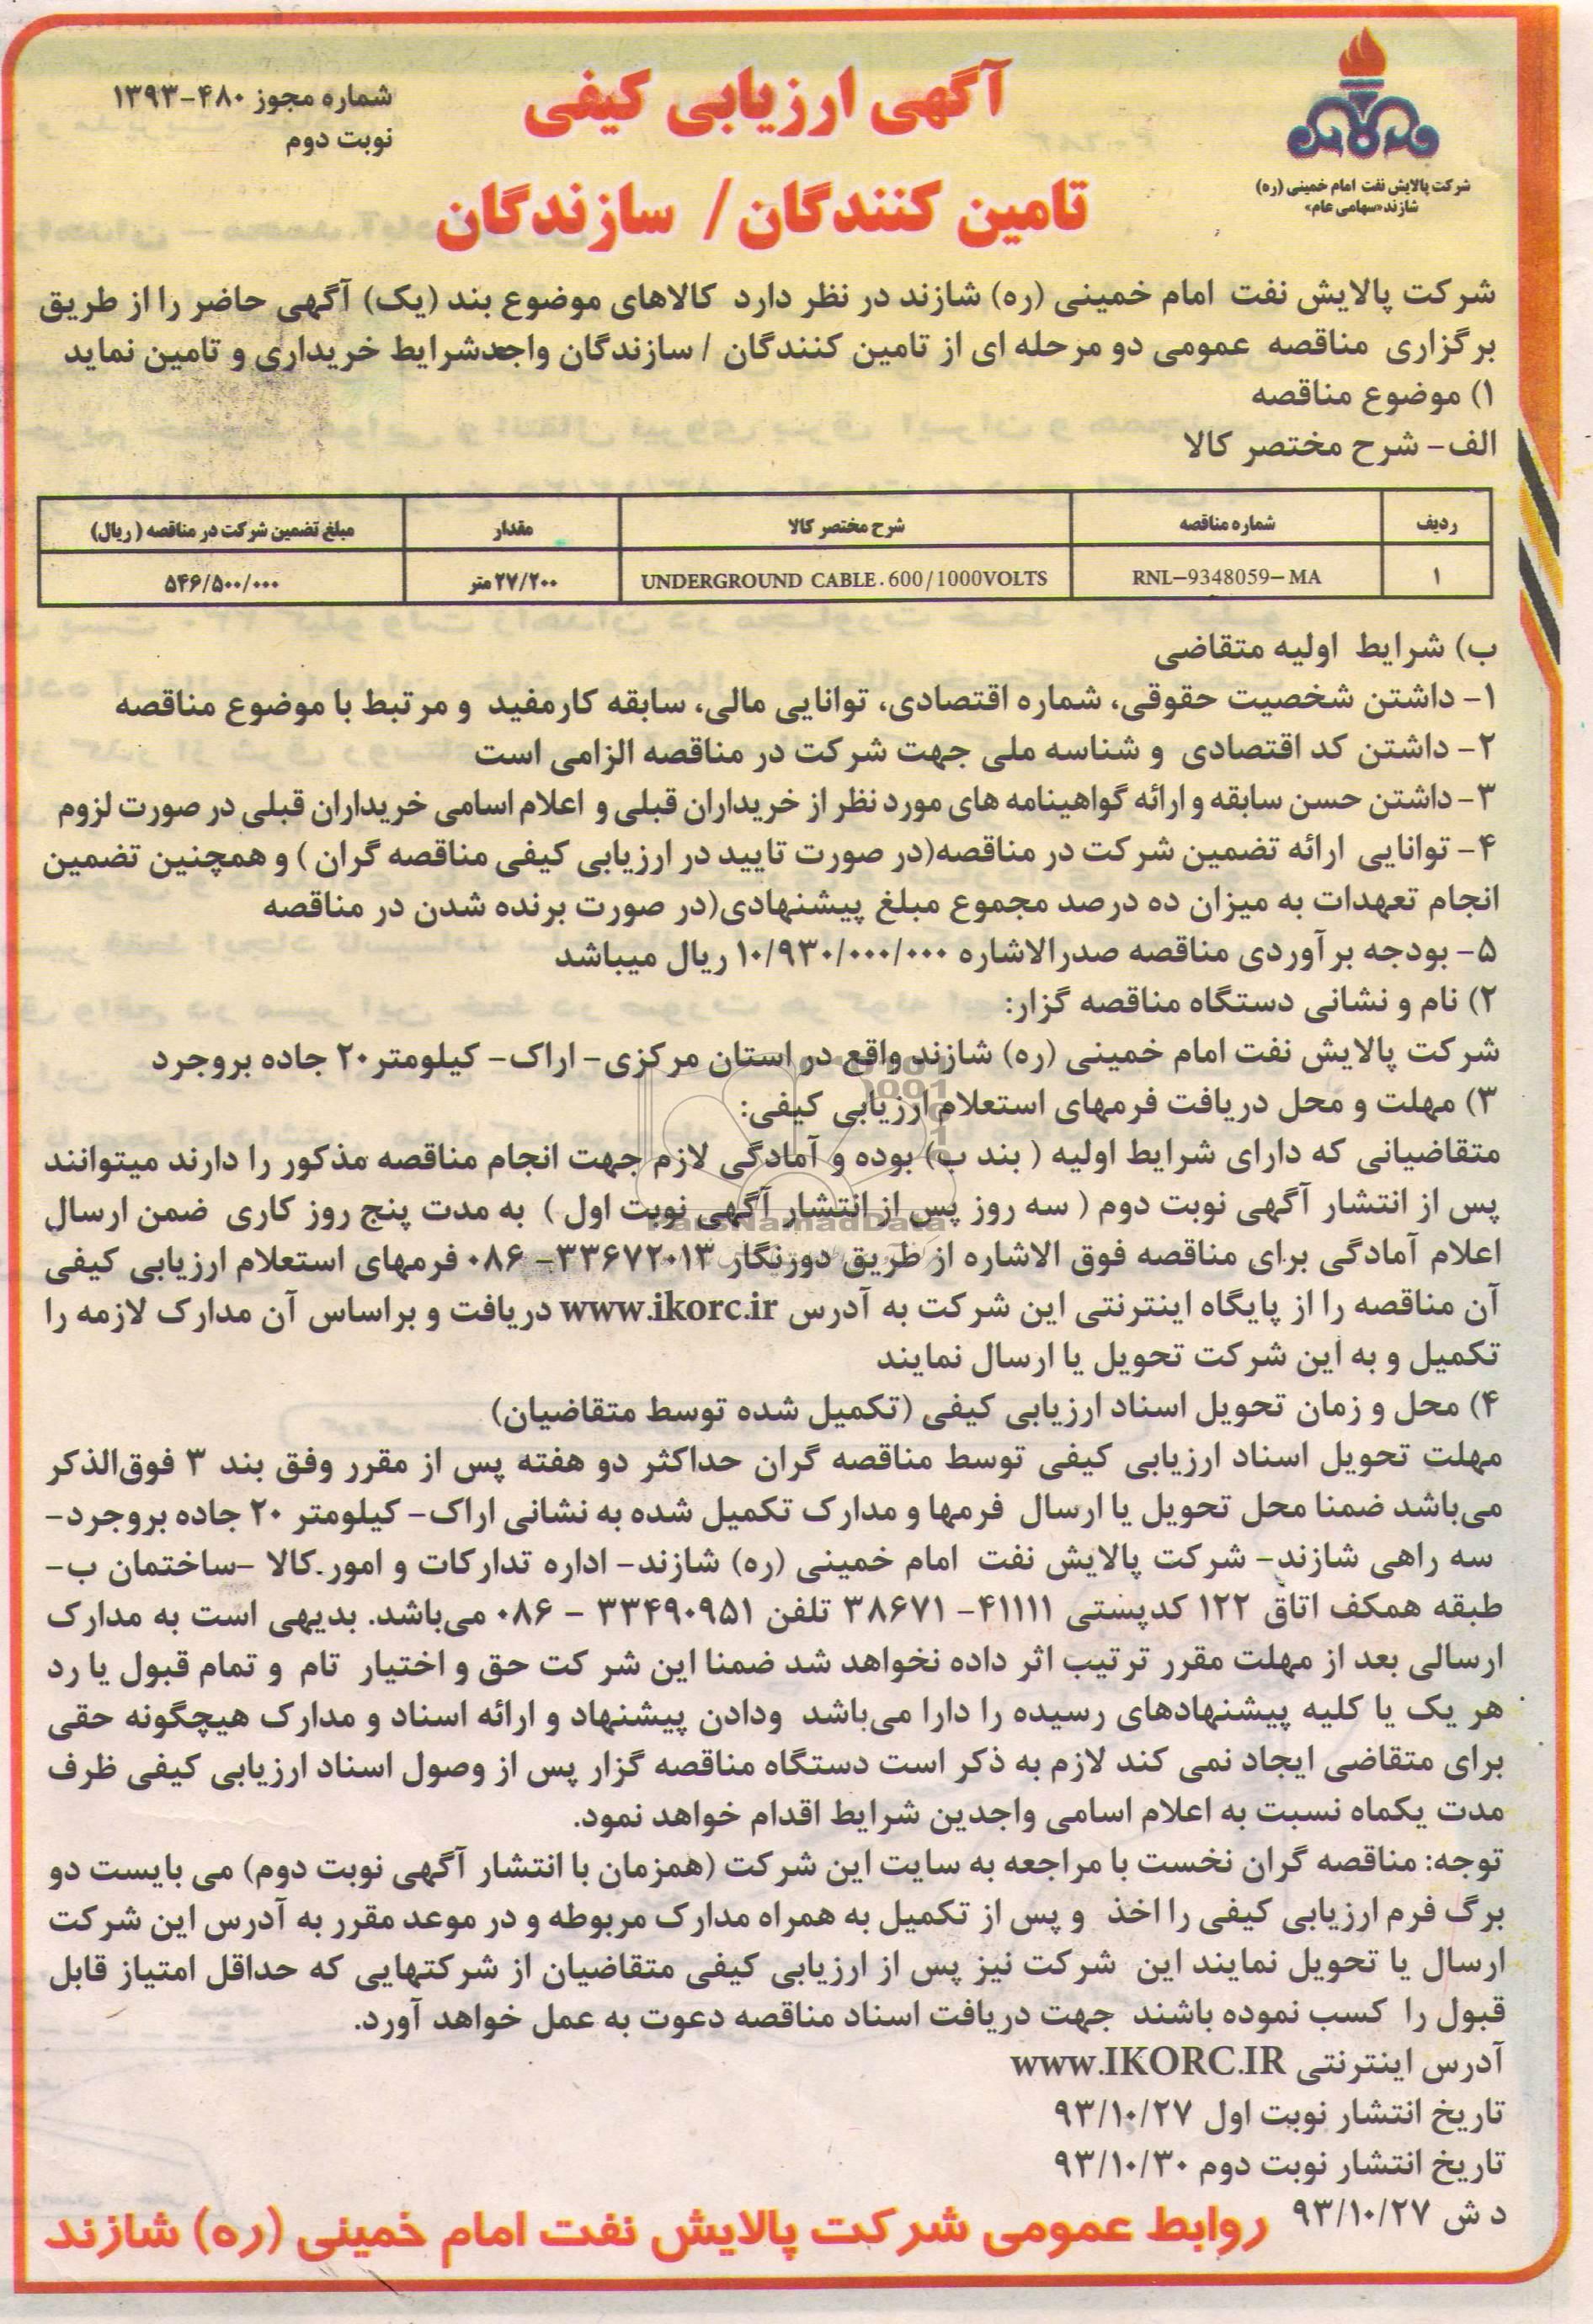 شرکت پالایش نفت امام خمینی (ره)
شازند«سهامی عام»
آگهی ارزیابی کیفی
تامین کنندگان/ سازندگان
شماره مجوز ۴۸۰-۱۳۹۳
نوبت دوم
شرکت پالایش نفت امام خمینی (ره) شازند در نظر دارد کالاهای موضوع بند (یک) آگهی حاضر را از طریق
برگزاری مناقصه عمومی دو مرحله ای از تامین کنندگان / سازندگان واجدشرایط خریداری و تامین نماید
۱) موضوع مناقصه
الف- شرح مختصر کالا
ردیف شماره مناقصه شرح مختصر کالا مقدار مبلغ تضمین شرکت در مناقصه (ریال)
۱ RNL-9348059-MA UNDERGROUND CABLE.600/1000VOLTS ۲۷/۲۰۰ متر ۵۴۶/۵۰۰/۰۰۰
ب) شرایط اولیه متقاضی
۱- داشتن شخصیت حقوقی، شماره اقتصادی، توانایی مالی، سابقه کارمفید و مرتبط با موضوع مناقصه
۲- داشتن کد اقتصادی و شناسه ملی جهت شرکت در مناقصه الزامی است
۳- داشتن حسن سابقه و ارائه گواهینامه های مورد نظر از خریداران قبلی و اعلام اسامی خریداران قبلی در صورت لزوم
۴- توانایی ارائه تضمین شرکت در مناقصه(در صورت تایید در ارزیابی کیفی مناقصه گران ) و همچنین تضمین
انجام تعهدات به میزان ده درصد مجموع مبلغ پیشنهادی(در صورت برنده شدن در مناقصه
۵- بودجه برآوردی مناقصه صدرالاشاره ۱۰/۹۳۰/۰۰۰/۰۰۰ ریال میباشد
۲) نام و نشانی دستگاه مناقصه گزار:
شرکت پالایش نفت امام خمینی (ره) شازند واقع در استان مرکزی- اراک- کیلومتر۲۰ جاده بروجرد
۳) مهلت و محل دریافت فرمهای استعلام ارزیابی کیفی:
متقاضیانی که دارای شرایط اولیه ( بند ب) بوده و آمادگی لازم جهت انجام مناقصه مذکور را دارند میتوانند
پس از انتشار آگهی نوبت دوم ( سه روز پس از انتشار آگهی نوبت اول ) به مدت پنج روز کاری ضمن ارسال
اعلام آمادگی برای مناقصه فوق الاشاره از طریق دورنگار ۳۳۶۷۲۰۱۳- ۰۸۶ فرمهای استعلام ارزیابی کیفی
آن مناقصه را از پایگاه اینترنتی این شرکت به آدرس www.ikorc.ir دریافت و براساس آن مدارک لازمه را
تکمیل و به این شرکت تحویل یا ارسال نمایند
۴) محل و زمان تحویل اسناد ارزیابی کیفی (تکمیل شده توسط متقاضیان)
مهلت تحویل اسناد ارزیابی کیفی توسط مناقصه گران حداکثر دو هفته پس از مقرر وفق بند ۳ فوق‌الذکر
می‌باشد ضمنا محل تحویل یا ارسال فرمها و مدارک تکمیل شده به نشانی اراک- کیلومتر ۲۰ جاده بروجرد-
سه راهی شازند- شرکت پالایش نفت امام خمینی (ره) شازند- اداره تدارکات و امور کالا -ساختمان ب-
طبقه همکف اتاق ۱۲۲ کدپستی ۴۱۱۱۱- ۳۸۶۷۱ تلفن ۳۳۴۹۰۹۵۱ - ۰۸۶ می‌باشد. بدیهی است به مدارک
ارسالی بعد از مهلت مقرر ترتیب اثر داده نخواهد شد ضمنا این شرکت حق و اختیار تام و تمام قبول یا رد
هر یک یا کلیه پیشنهادهای رسیده را دارا می‌باشد ودادن پیشنهاد و ارائه اسناد و مدارک هیچگونه حقی
برای متقاضی ایجاد نمی کند لازم به ذکر است دستگاه مناقصه گزار پس از وصول اسناد ارزیابی کیفی ظرف
مدت یکماه نسبت به اعلام اسامی واجدین شرایط اقدام خواهد نمود.
توجه: مناقصه گران نخست با مراجعه به سایت این شرکت (همزمان با انتشار آگهی نوبت دوم) می بایست دو
برگ فرم ارزیابی کیفی را اخذ و پس از تکمیل به همراه مدارک مربوطه و در موعد مقرر به آدرس این شرکت
ارسال یا تحویل نمایند این شرکت نیز پس از ارزیابی کیفی متقاضیان از شرکتهایی که حداقل امتیاز قابل
قبول را کسب نموده باشند جهت دریافت اسناد مناقصه دعوت به عمل خواهد آورد.
آدرس اینترنتی www.IKORC.IR
تاریخ انتشار نوبت اول ۹۳/۱۰/۲۷
تاریخ انتشار نوبت دوم ۹۳/۱۰/۳۰
د ش ۹۳/۱۰/۲۷
روابط عمومی شرکت پالایش نفت امام خمینی (ره) شازند